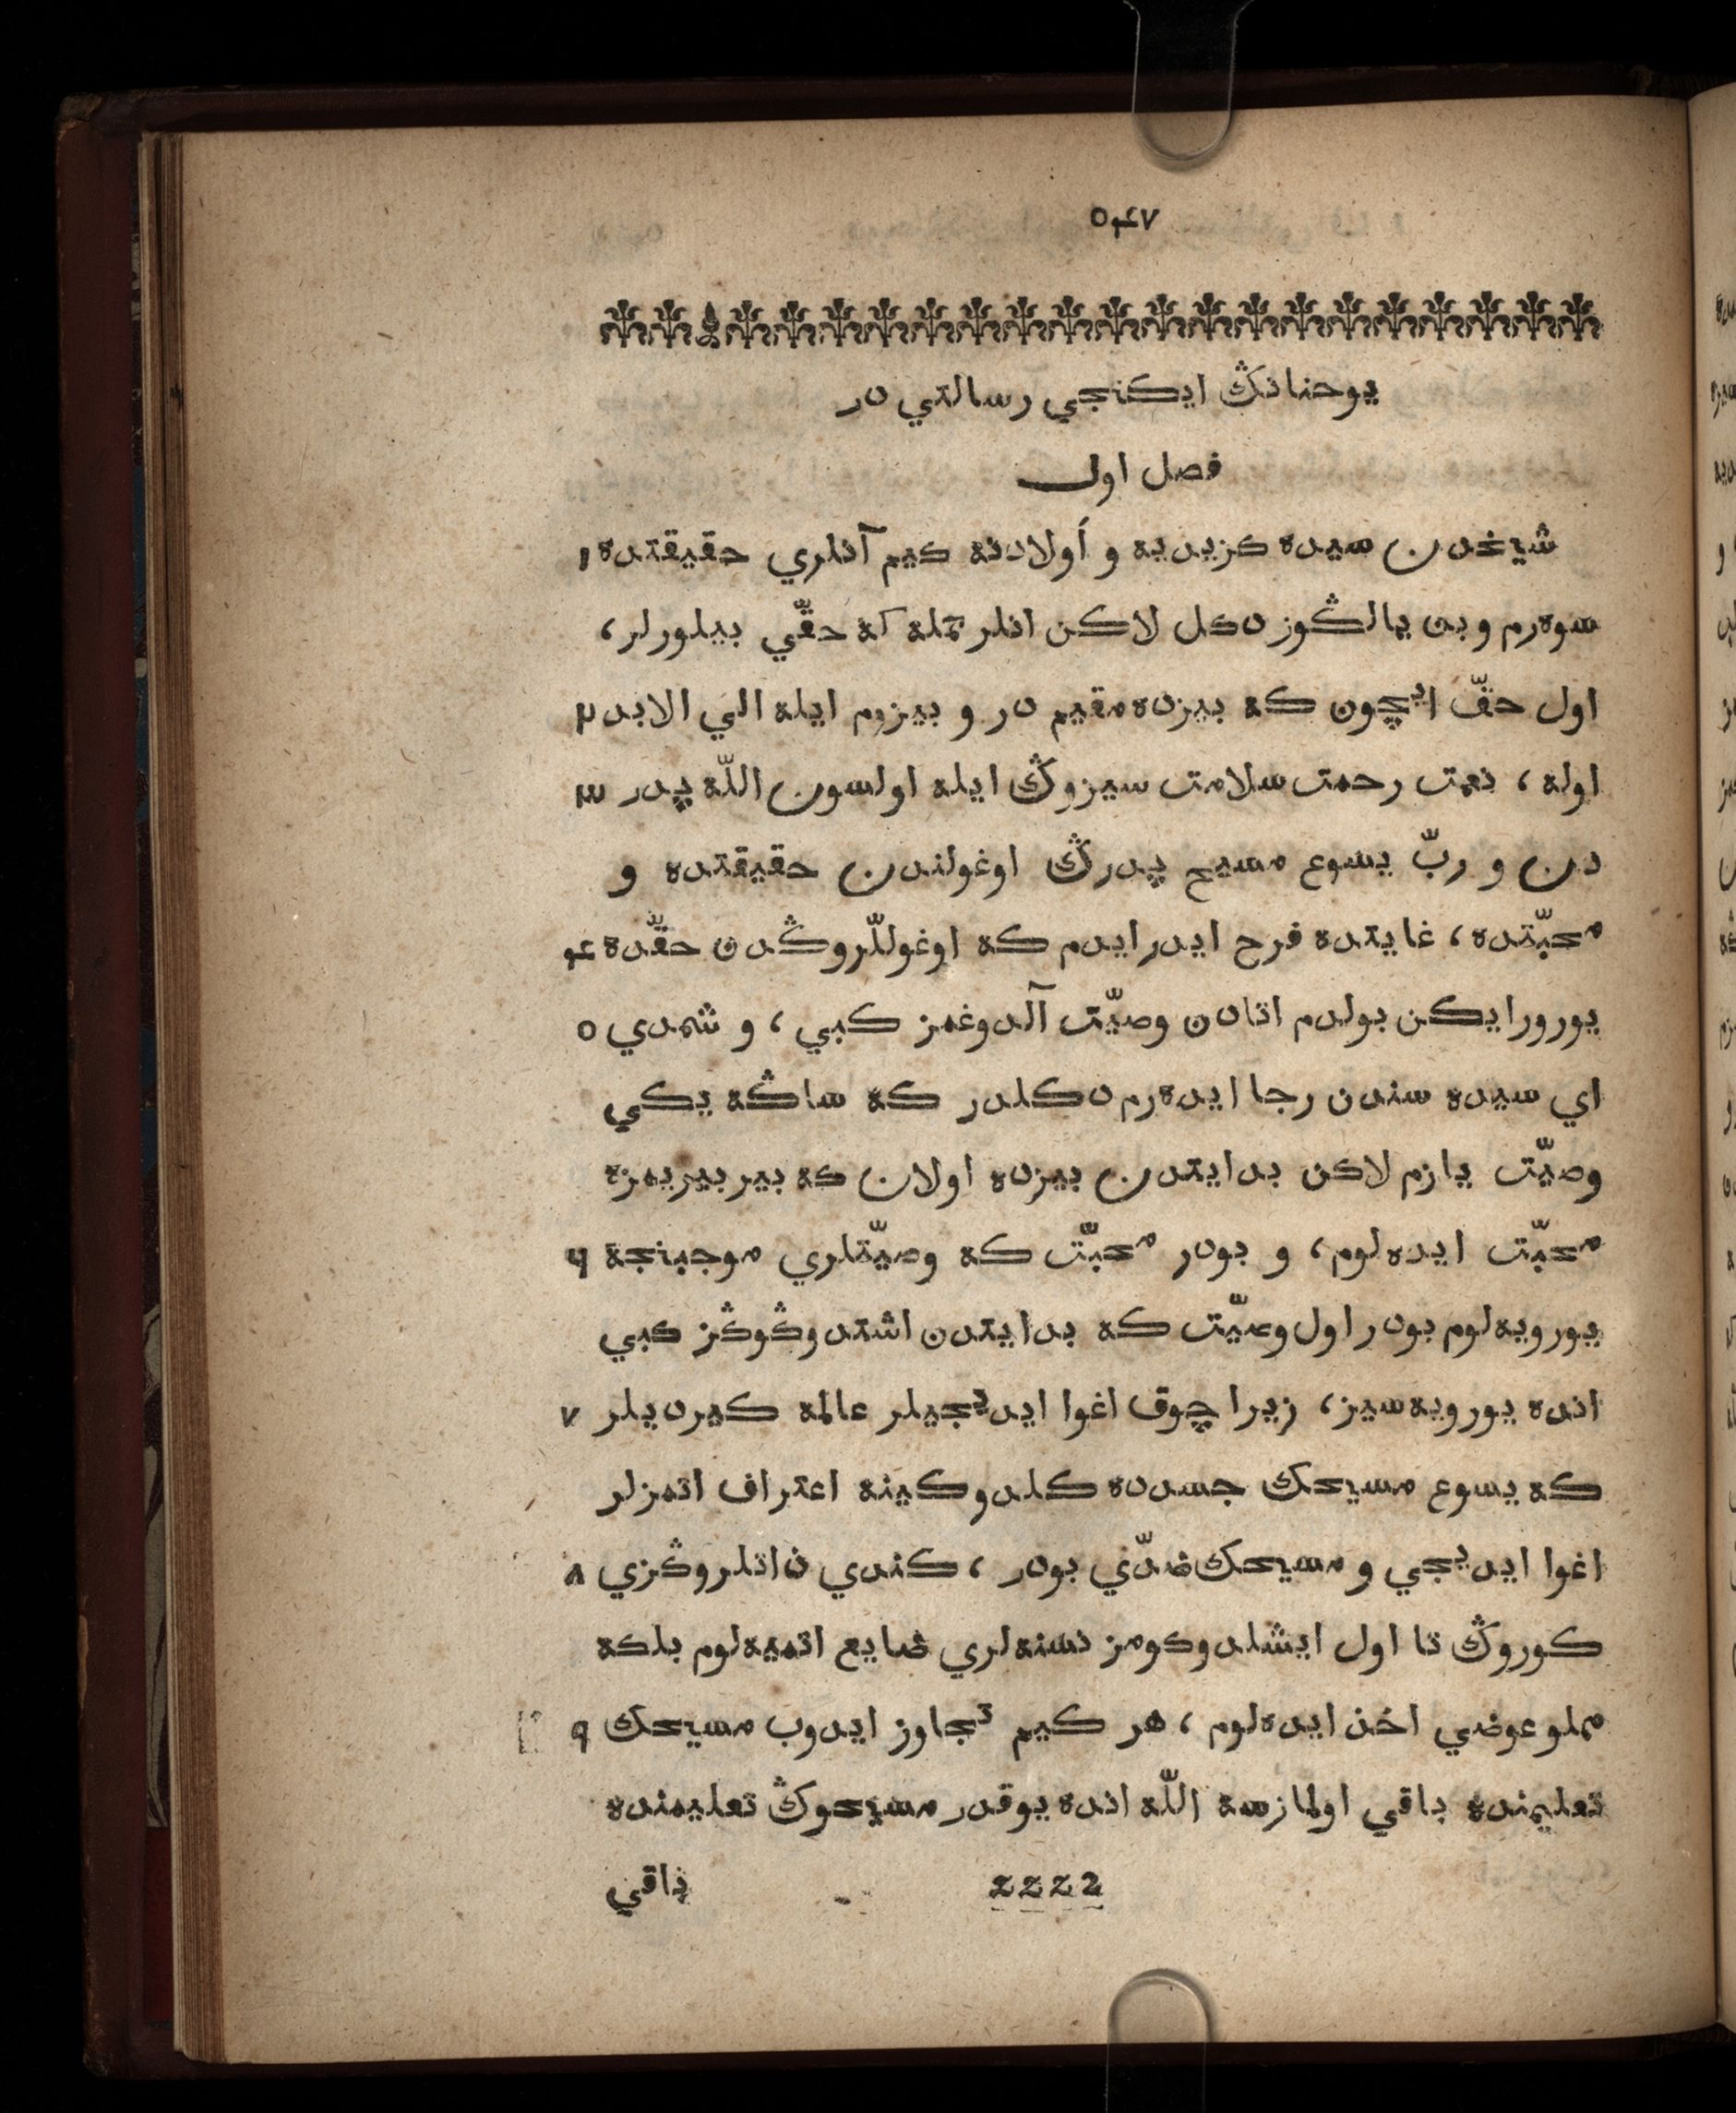 ٥٤٧
يوحنانڭ ايكنجي رسالتي در
فصل اول
شيخدن سيده كزيديه و أولادنه كيم آنلري حقيقتده ١
سوەرم و بن يالڭوز دكل لاكن انلر جمله كه حقّي بيلورلر،
اول حقّ ايچون كه بيزده مقيم در و بيزم ايله الي الابد ٢
اوله ، نعمت رحمت سلامت سيزوڭ ايله اولسون اللّه پدر ٣
دن و ربّ يسوع مسيح پدرڭ اوغولندن حقيقتده و
محبّتده ، غايتده فرح ايدرايدم كه اوغوللّروڭدن حقّده ٤
يورورايكن بولدم اتادن وصيّت آلدوغمز كبي ، و شمدي ٥
اي سيده سندن رجا ايدەرم دكلدر كه ساڭه يكي
وصيّت يازم لاكن بدايتدن بيزده اولان كه بير بيريمزه
محبّت ايدەلوم ، و بودر محبّت كه وصيّتلري موجبنجه ٦
يورويەلوم بودر اول وصيّت كه بدايتدن اشتدوڭوڭز كبي
انده يورويەسيز ، زيرا چوق اغوا ايديجيلر عالمه كيرديلر ٧
كه يسوع مسيحك جسدده كلدوكينه اعتراف اتمزلر
اغوا ايديجي و مسيحك ضدّي بودر ، كندي ذاتلروڭزي ٨
كوروڭ تا اول ايشلدوكومز نسنەلري ضايع اتميەلوم بلكه
مملو عوضي اخذ ايدەلوم ، هر كيم تجاوز ايدوب مسيحك ٩
تعليمنده باقي اولمازسه اللّه انده يوقدر مسيحوڭ تعليمنده
2 z z z باقي